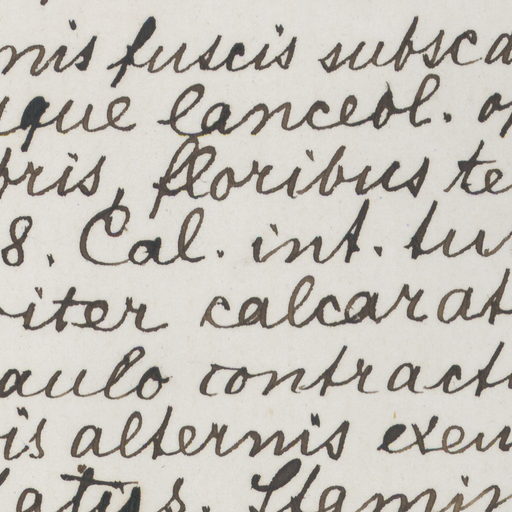 nis fuscis subsca
que lanceol. o
bris, floribus te
8. Cal. int. tu
iter calcarat
aulo contracti
is alternis exeu
latis s. Stamin